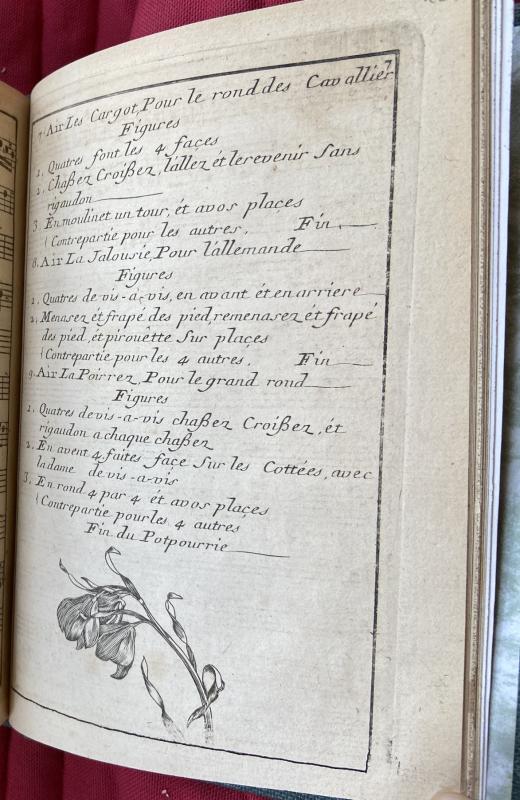 7
7. Air Les Cargot, Pour le rond des Cavallier
Figures
1. Quatres font les 4 façes
2. Chaßez Croißez, l'allez ét le revenir Sans
rigaudon
3 En moulinet un tour, ét avos plaçes
{Contrepartie pour les autres. Fin.
8. Air La Jalousie, Pour l'allemande
Figures
1. Quatres de vis-a-vis, en avant ét en arriere
2. Menasez ét frapé des pied, remenasez ét frapé
des pied, ét piroûette Sur plaçes
{Contrepartie pour les 4 autres. Fin
9. Air La Poirrez, Pour le grand rond
Figures
1. Quatres de vis-a-vis chaßez Croißez, ét
rigaudon a chaque chaßez
2. En avent 4, faites façe Sur les Cottées, avec
la dame de vis-a-vis
3. En rond 4 par 4 ét avos plaçes
{Contrepartie pour les 4 autres
Fin du Potpourrie